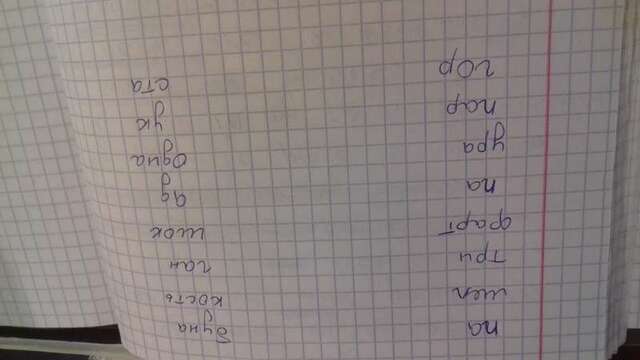 па буна
мел кость
три ган
фарт шок
па ад
ура одиа
пар ук
гор ста